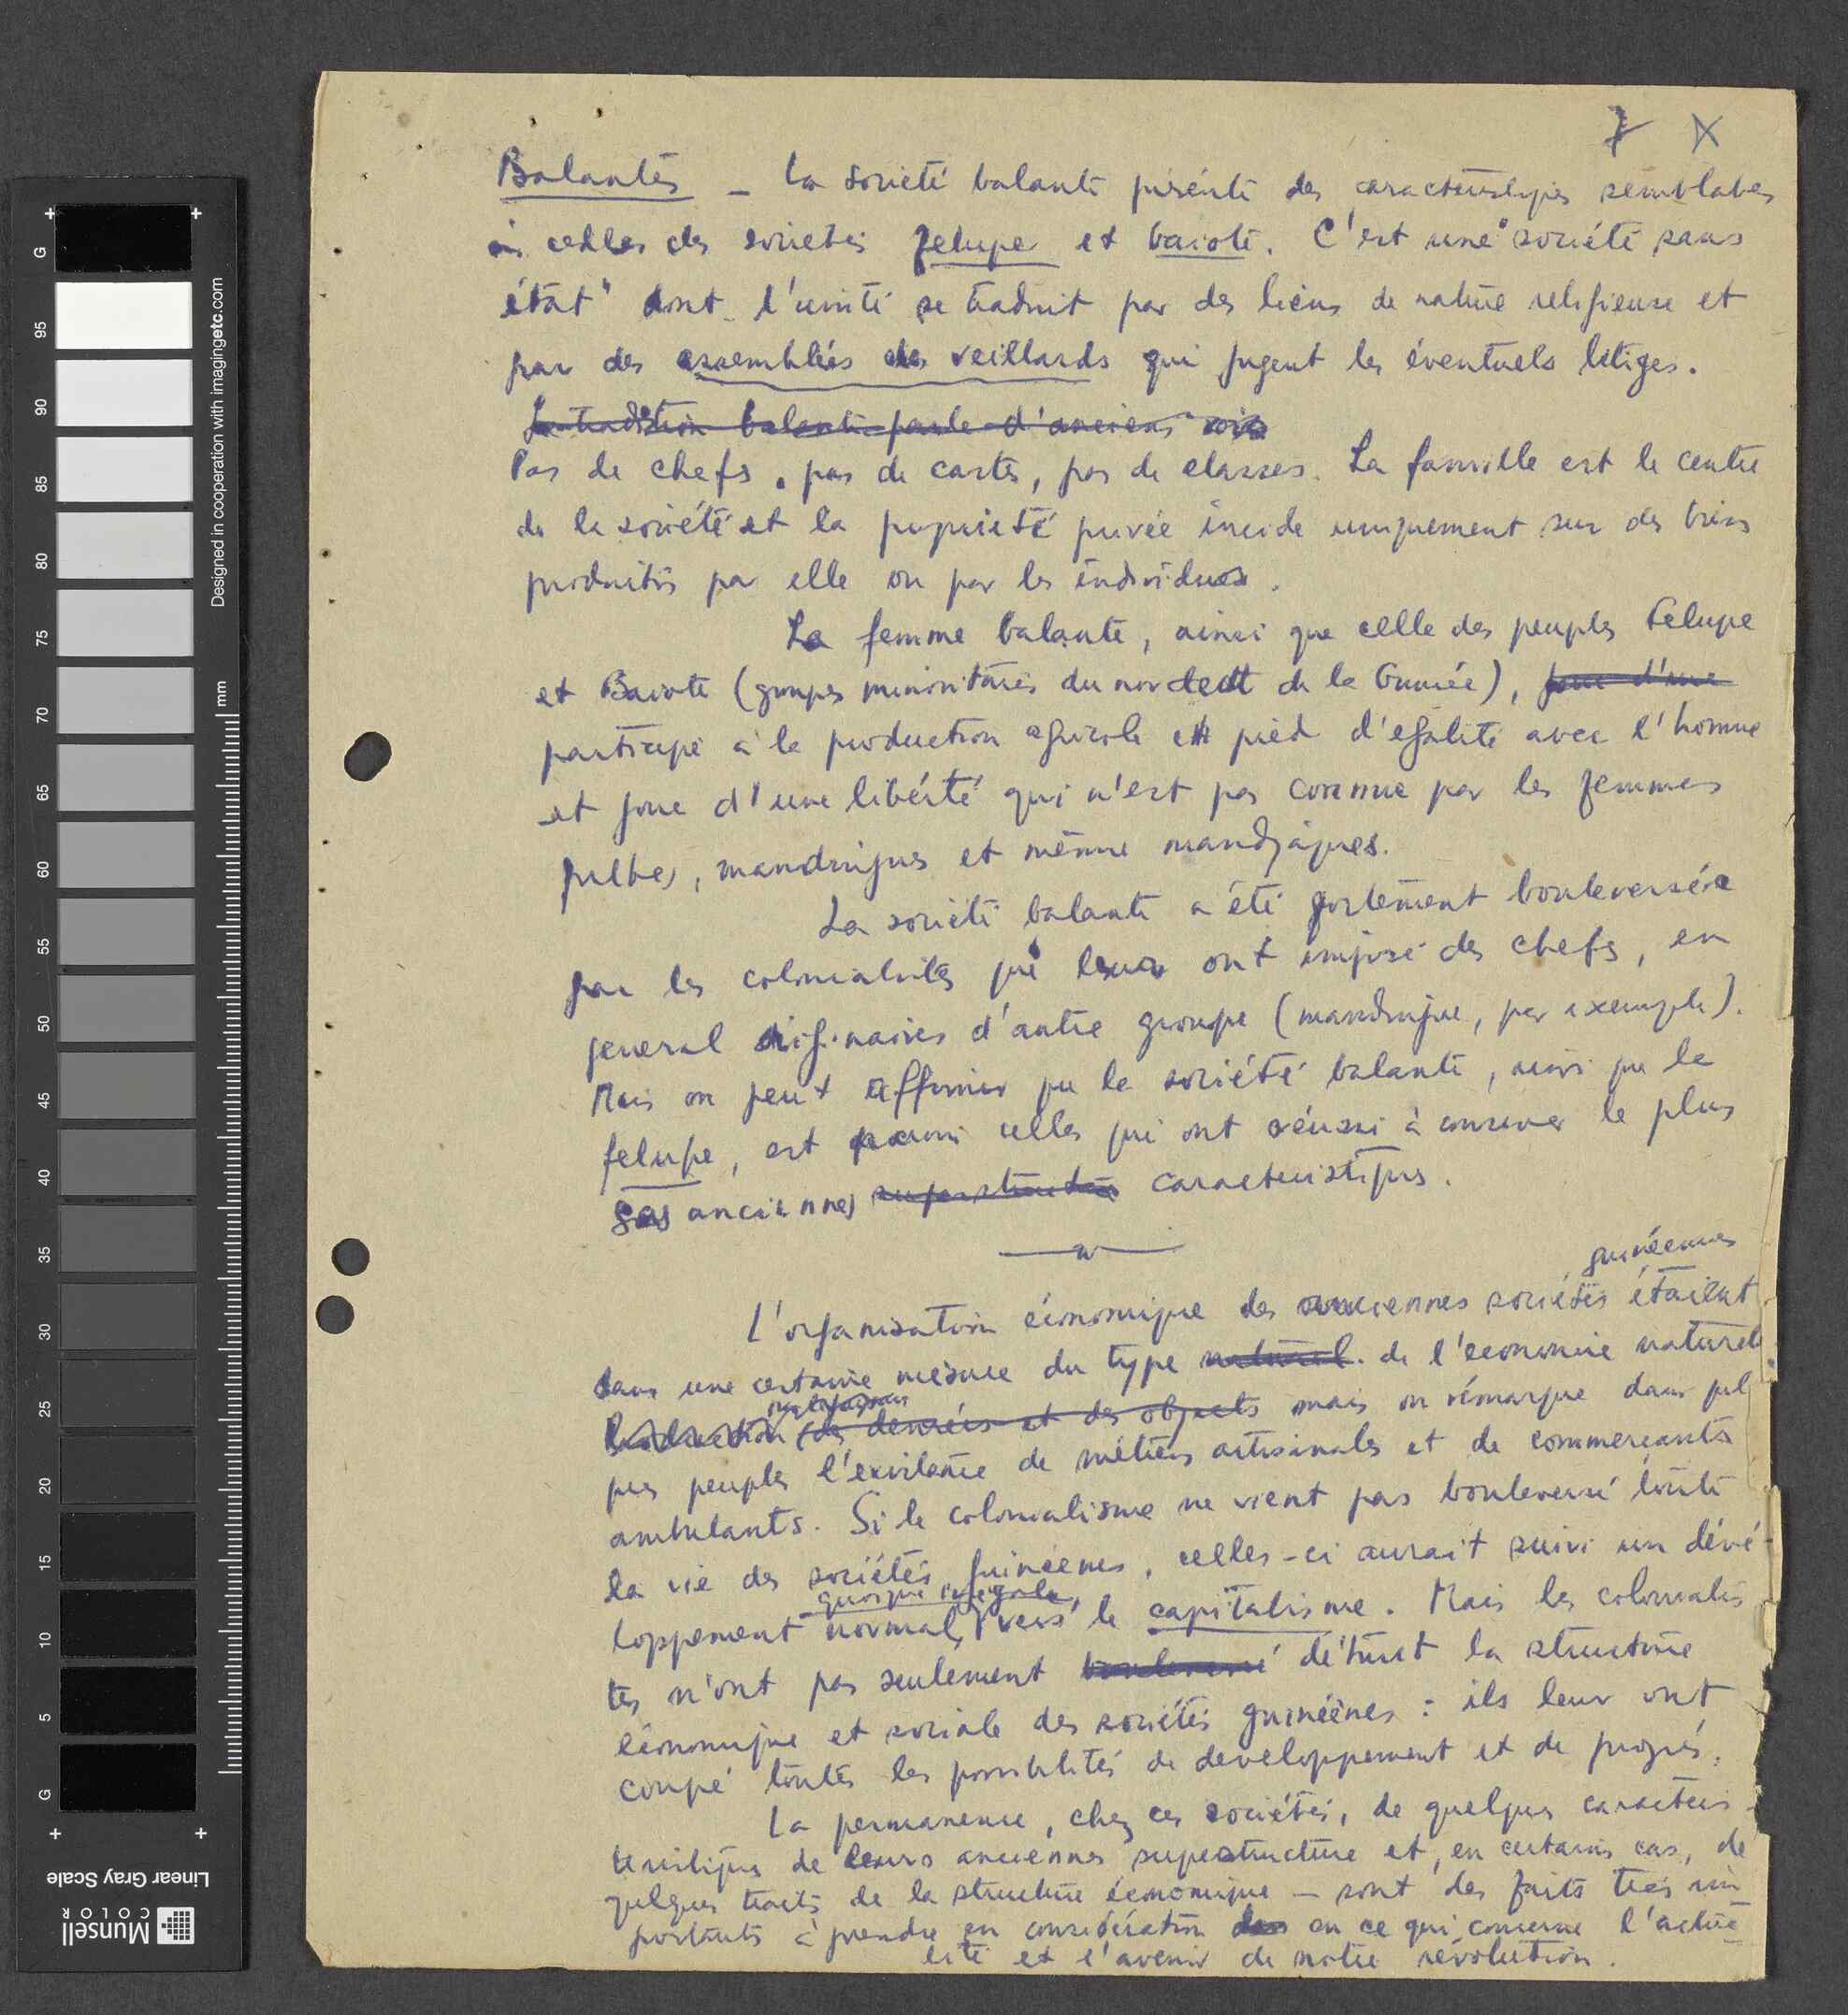 7 X
Balantes - La société balante présente des caractéristiques semblables
à celles des sociétés felupe et baiote. C'est une "société sans
état" dont l'unité se traduit par des liens de nature religieuse et
par des assemblées des veillards qui jugent les éventuels litiges.
La tradition balante parle d'anciens rois
Pas de chefs, pas de castes, pas de classes. La famille est le centre
de la société et la propriété privée incide uniquement sur des biens
produits par elle ou par les individus.
La femme balante, ainsi que celle des peuples Felupe
et Baiote (groupes minoritaires du nordest de la Guinée), joue d'une
participe à la production agricole en pied d'égalité avec l'homme
et joue d'une liberté qui n'est pas connue par les femmes
fulbes, mandingues et même mandjaques.
La société balante a été fortement bouleversée
par les colonialistes qui leur ont imposé des chefs, en
general originaires d'autre groupe (mandingue, par exemple).
Mais on peut affirmer que la société balante, ainsi que la
felupe, est parmi celles qui ont réussi à conserver le plus
ses anciennes superstructures caracteristiques.
guinéennes
L'organisation économique des anciennes sociétés étaient
dans une certaine mesure du type naturel. de l'économie naturelle
Production des denrées et des objects mais on rémarque dans quel
ques peuples l'existance de métiers artisinales et de commerçants
ambulants. Si le colonialisme ne vient pas bouleversé toute
la vie des sociétés guinéenes, celles-ci aurait suivi un dévé-
quoique inégale,
loppement normal, vers le capitalisme. Mais les colonialis
tes n'ont pas seulement bouleversé détruit la structure
économique et sociale des sociétés guinéènes : ils leur ont
coupé toutes les possibilités de developpement et de progrés.
La permanence, chez ces sociétés, de quelques caracteris-
teristiques de leurs anciennes superstructure et, en certains cas, de
quelques traits de la structure économique - sont des faits très im-
portants à prendre en considération en ce qui concerne l'actua-
lité et l'avenir de notre révolution.